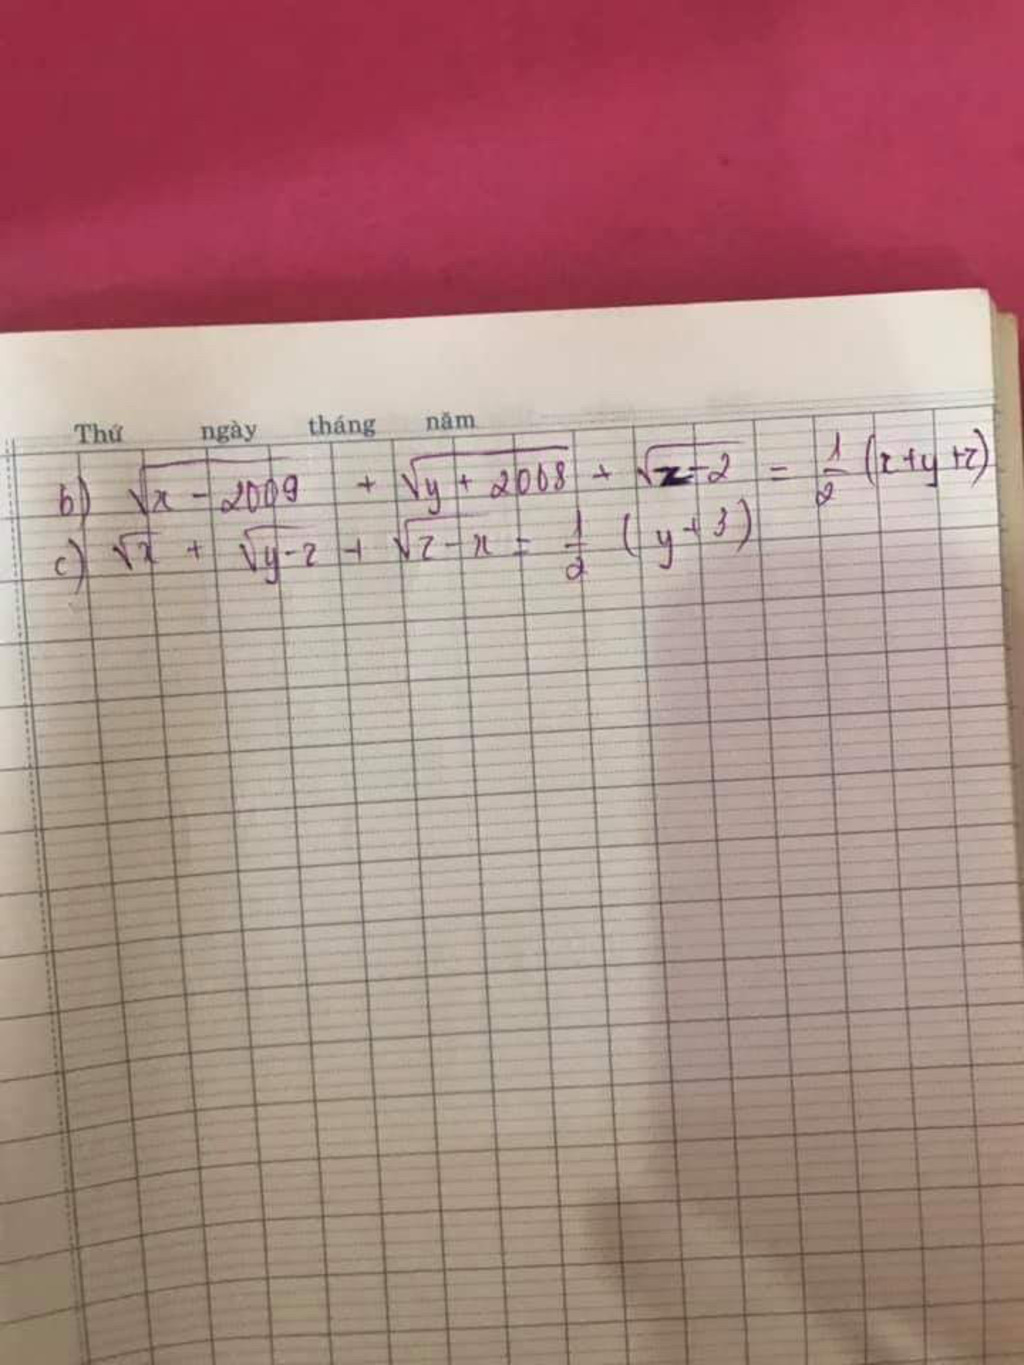 Thứ ngày tháng năm
b) √x - 2009 + √y + 2008 + √z - 2 = 1/2 (x+y+z)
c) √x + √y-z + √z-x = 1/2 (y+3)